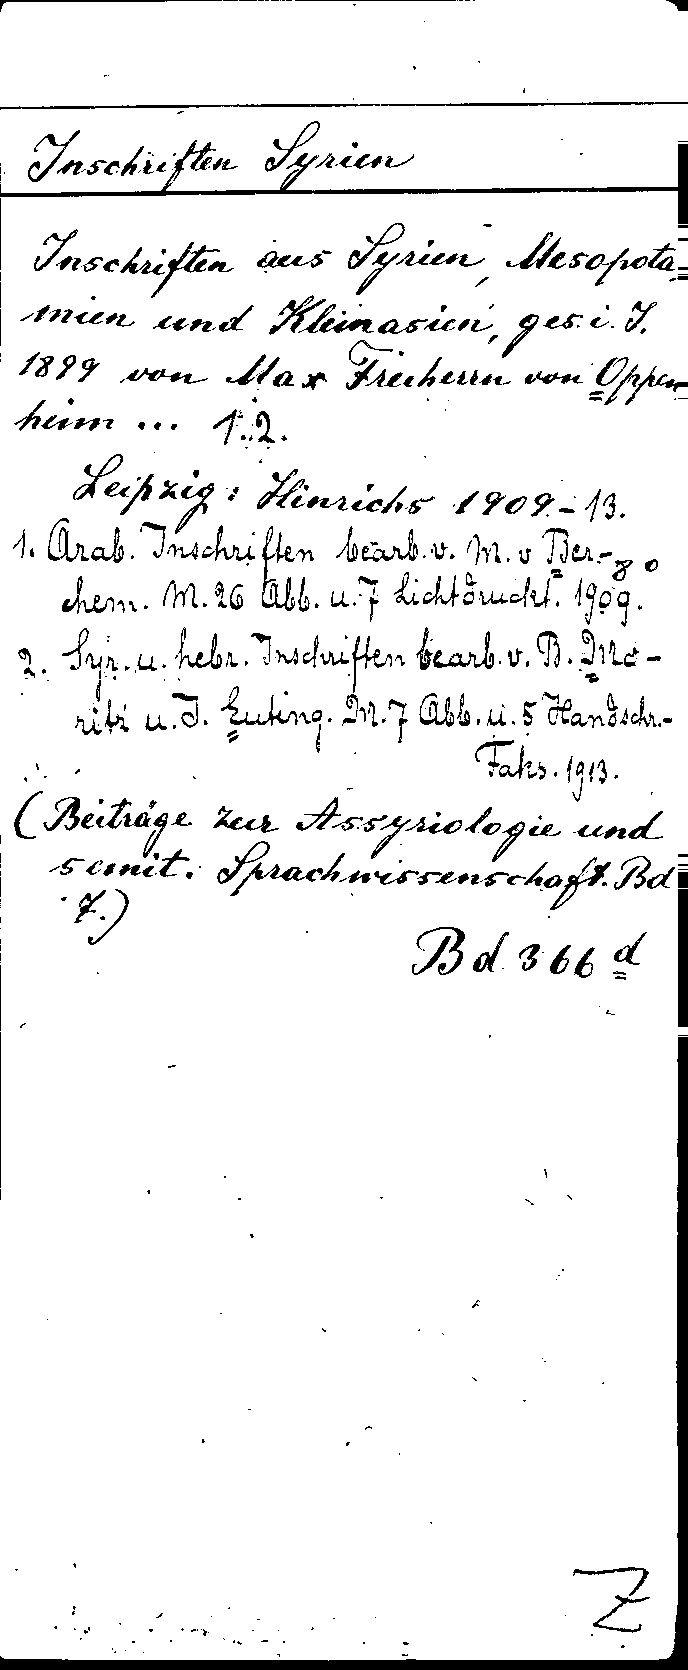 Inschriften Syrien
Inschriften aus Syrien, Mesopota-
mien und Kleinasien, ges. i. J.
1899 von Max Freiherrn von Oppen-
heim ... 1.2.
Leipzig: Hinrichs 1909-13.
1. Arab. Inschriften bearb. v. M. v Ber-
8°
chem. M. 26 Abb. u. 7 Lichtdruckt. 1909.
2. Syr. u. hebr. Inschriften bearb. v. B. Mo-
ritz u. J. Euting. M. 7 Abb. u. 5 Handschr.-
Faks. 1913.
(Beiträge zur Assyriologie und
semit. Sprachwissenschaft. Bd
7.)
Bd 366 d
Z